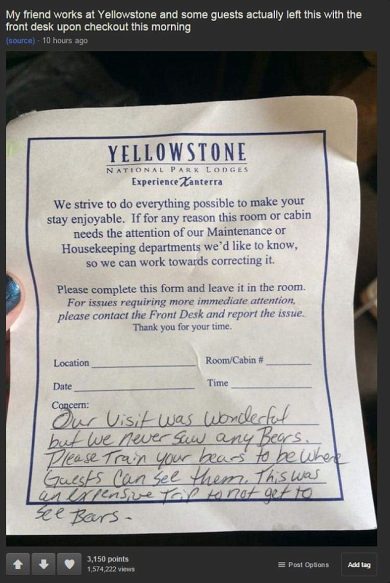 My friend works at Yellowstone and some guests actually left this with the
front desk upon checkout this morning
(source) - 10 hours ago
YELLOWSTONE
NATIONAL PARK LODGES
Experience Xanterra
We strive to do everything possible to make your
stay enjoyable. If for any reason this room or cabin
needs the attention of our Maintenance or
Housekeeping departments we'd like to know,
so we can work towards correcting it.
Please complete this form and leave it in the room.
For issues requiring more immediate attention,
please contact the Front Desk and report the issue.
Thank you for your time.
Location Room/Cabin #
Date Time
Concern:
Our Visit was wonderful
but we never saw any Bears.
Please Train your bears to be where
Guests can see them. This was
an Expensive Trip to not get to
see Bears.
3,150 points
1,574,222 views
Post Options
Add tag